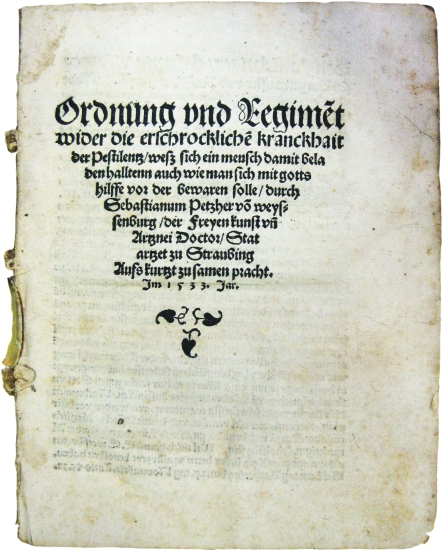 Ordnung vnd Regimẽt
wider die erschrocklichẽ kranckhait
der Pestilentz/ wesz sich ein mensch damit bela
den halltenn auch wie man sich mit gotts
hilffe vor der bewaren solle/ durch
Sebastianum Petzher võ weys-
senburg/ der Freyen kunst vñ
Artznei Doctor/ Stat
artzet zu Straubing
Auffs kurtzt zusamen pracht.
Im 1533. Jar.